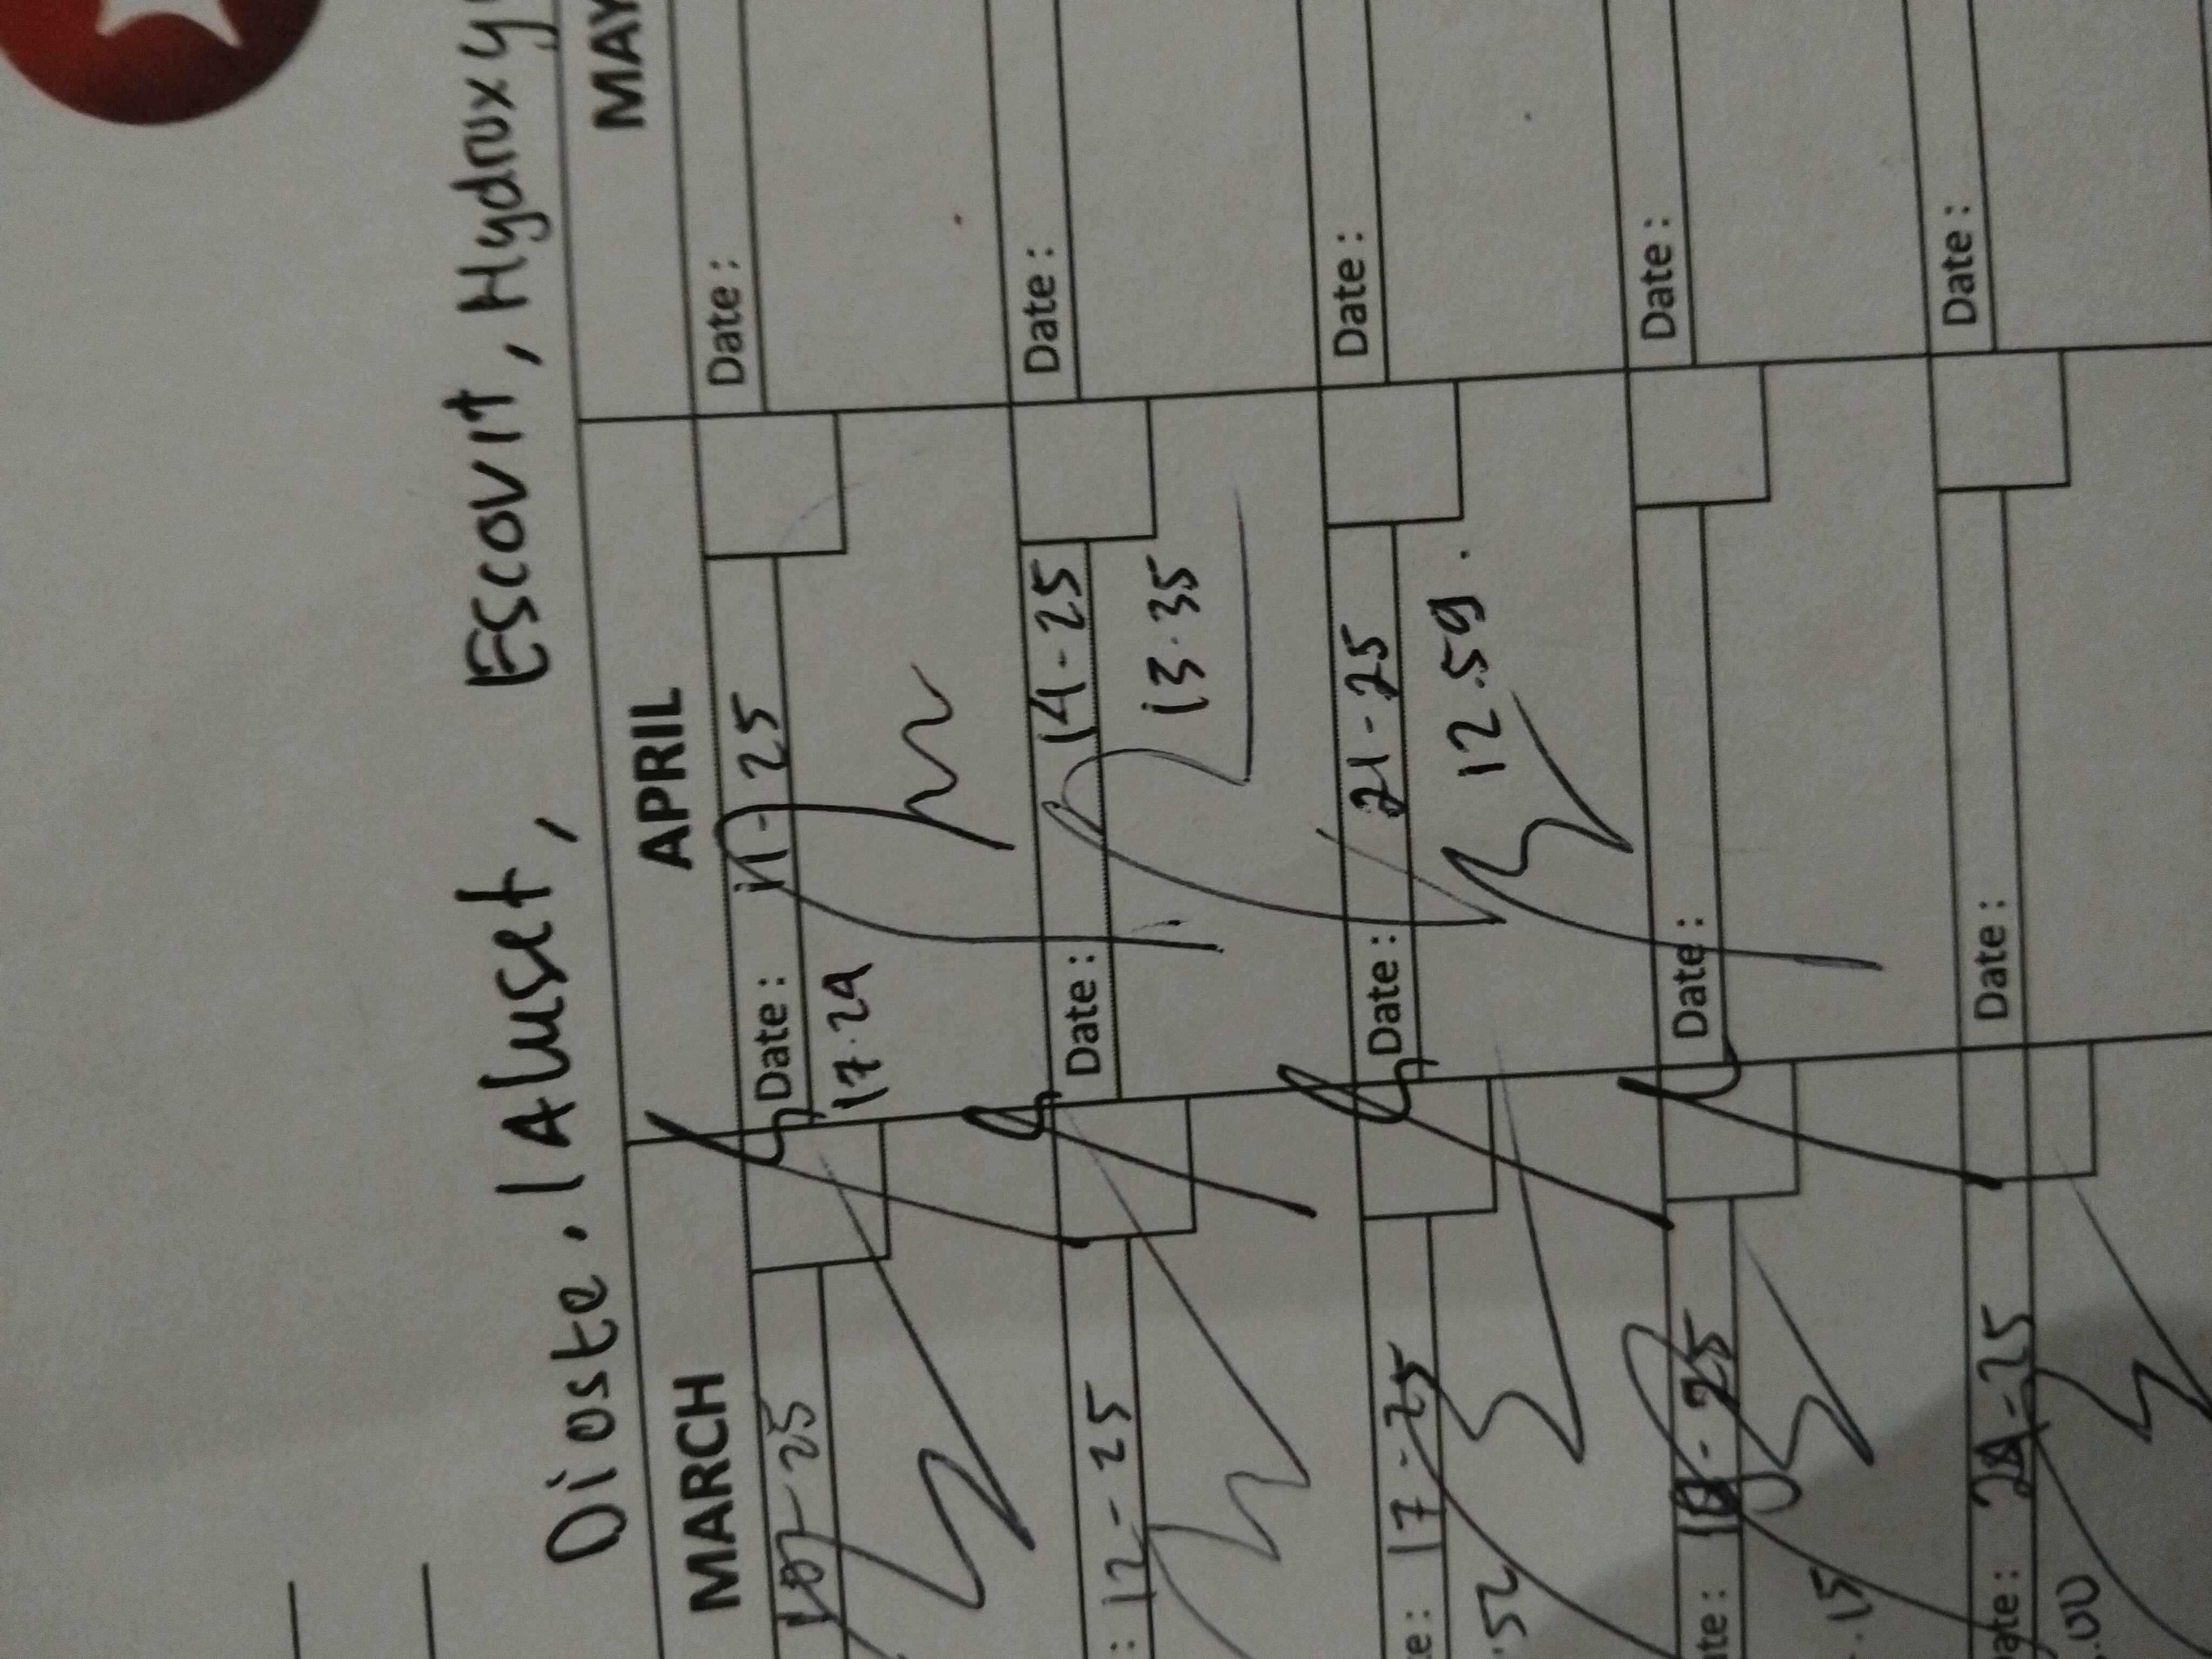 Dioste. 1 Aluset, Escovit, Hydroxy
MARCH APRIL MAY
25 Date: 11-25 Date:
17.29
: 12-25 Date: 14-25 Date:
13.35
te: 17-25 Date: 21-25 Date:
.52 12.59.
te: 18-25 Date: Date:
.15
ate: 24-25 Date: Date:
.00